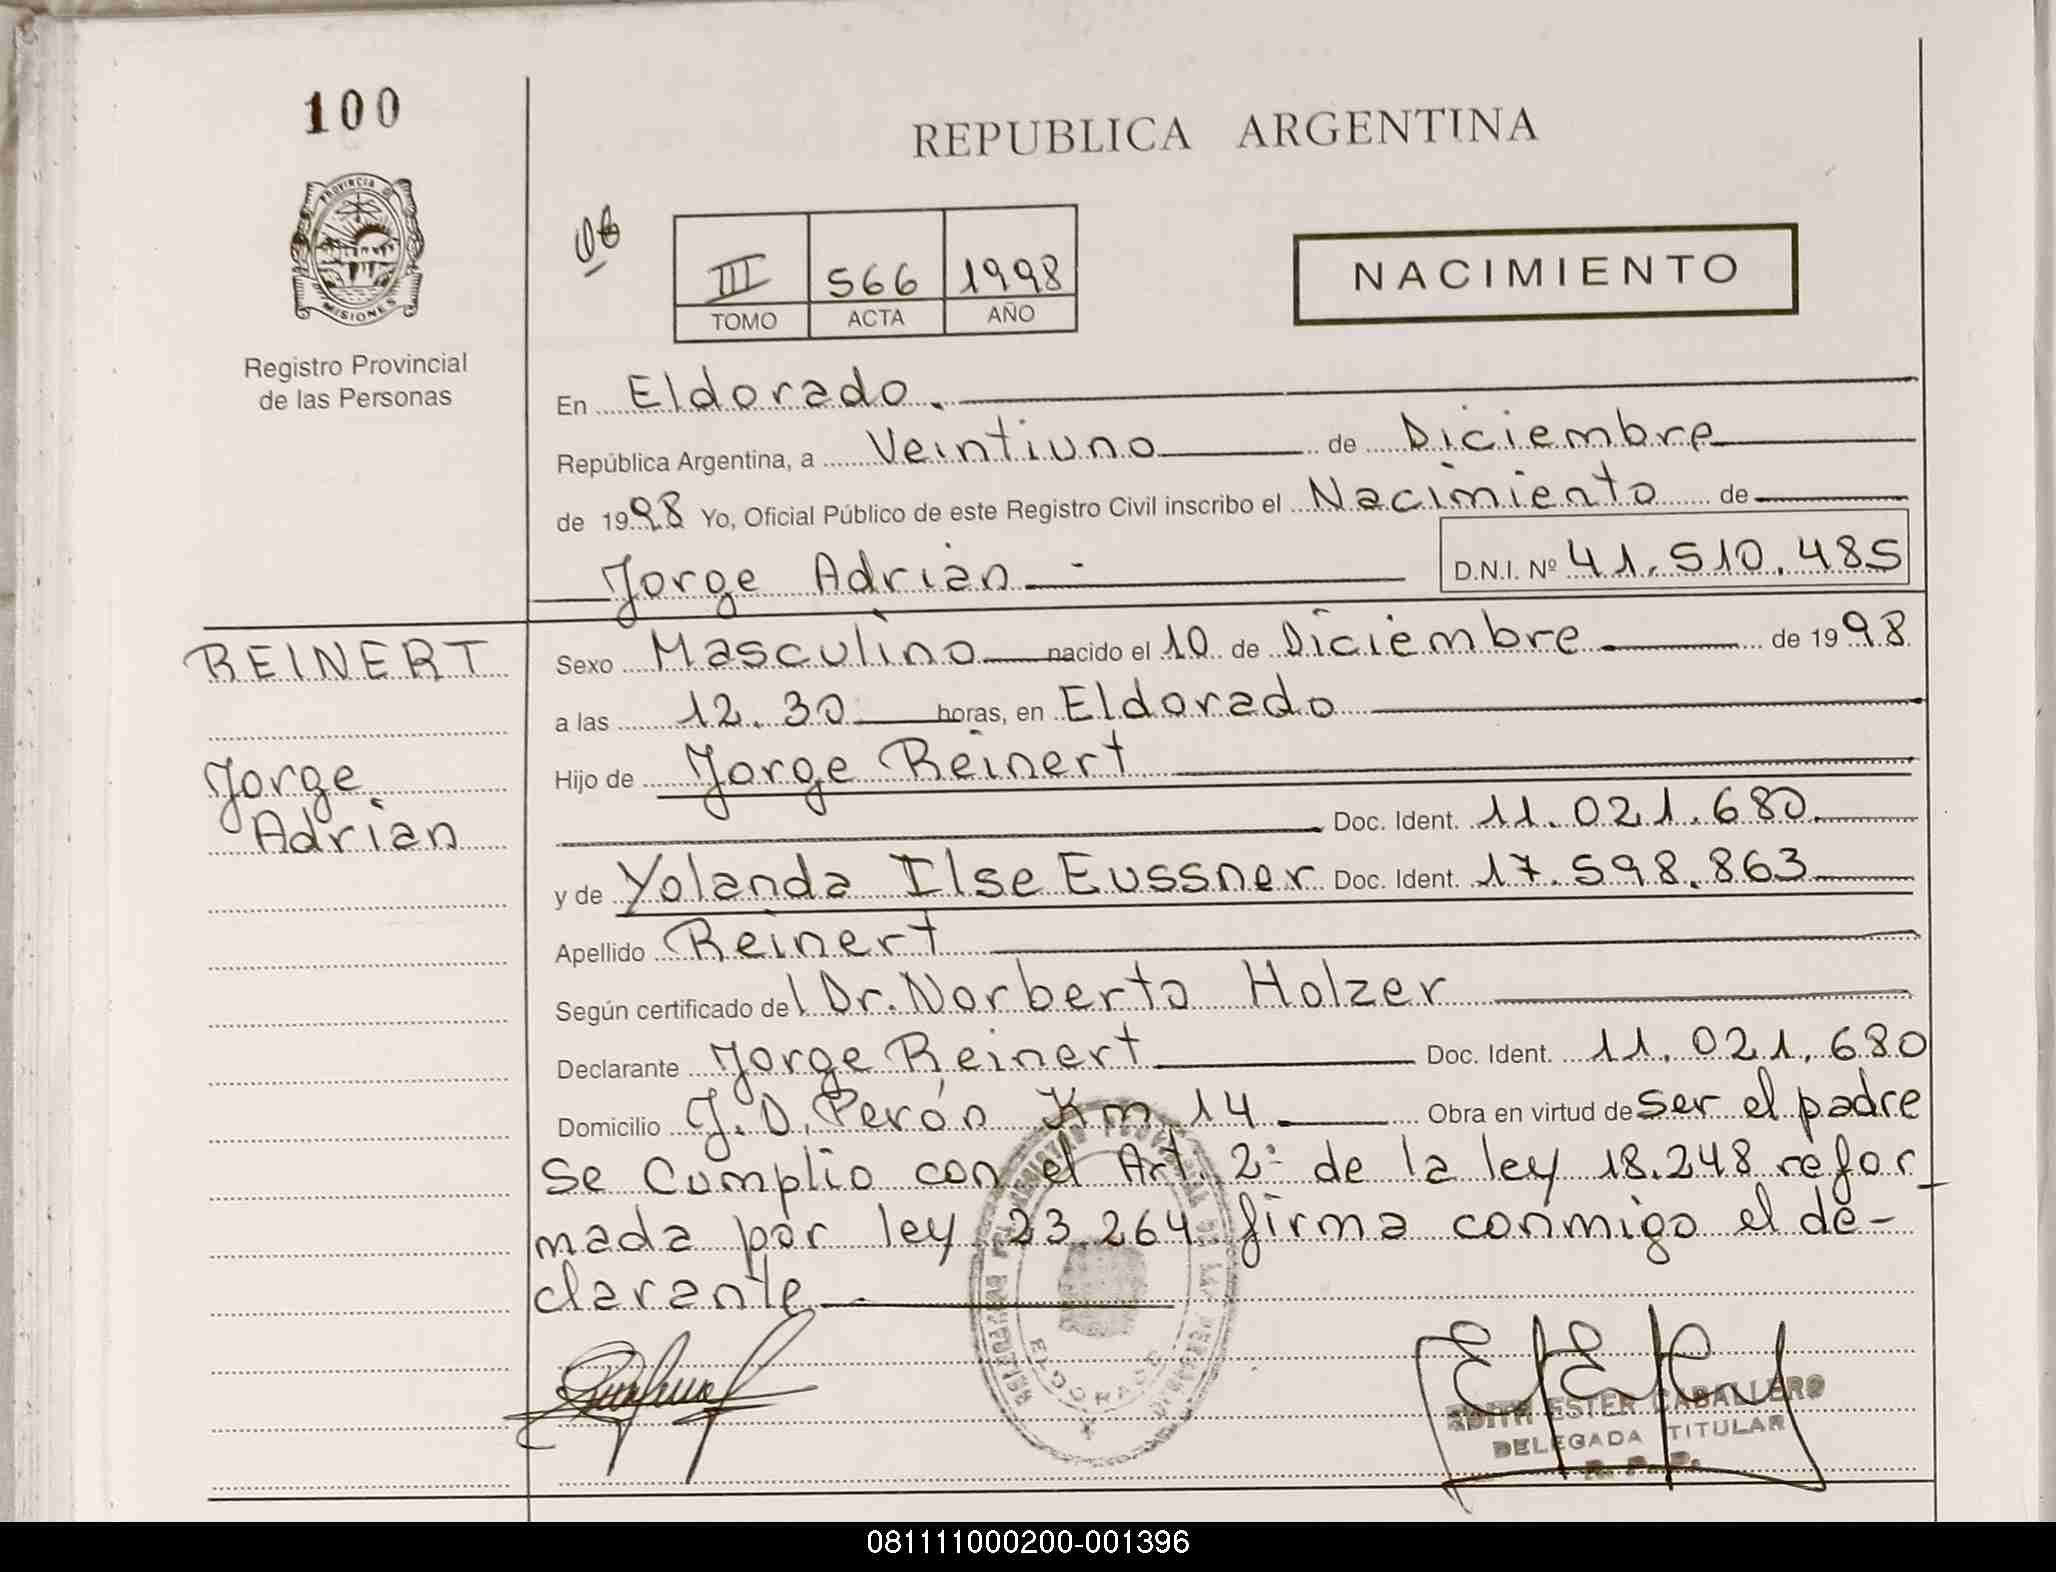 100
REPUBLICA ARGENTINA
PROVINCIA DE
MISIONES
III 566 1998
TOMO ACTA AÑO
NACIMIENTO
Registro Provincial
de las Personas
En Eldorado.
República Argentina, a Veintiuno de Diciembre
de 1998 Yo, Oficial Público de este Registro Civil inscribo el Nacimiento de
Jorge Adrian D.N.I. Nº 41.510.485
REINERT
Jorge
Adrian
Sexo Masculino nacido el 10 de Diciembre de 1998
a las 12.30 horas, en Eldorado
Hijo de Jorge Reinert
Doc. Ident. 11.021.680
y de Yolanda Ilse Eussner Doc. Ident. 17.598.863
Apellido Reinert
Según certificado del Dr. Norberto Holzer
Declarante Jorge Reinert Doc. Ident. 11.021.680
Domicilio J.D. Perón Km 14 Obra en virtud de ser el padre
Se Cumplio con el Art. 2º de la ley 18.248 refor
mada por ley 23.264 firma conmigo el de-
clarante
ELDORADO
EDITH ESTER CABALLERO
DELEGADA TITULAR
R. P. P.
081111000200-001396